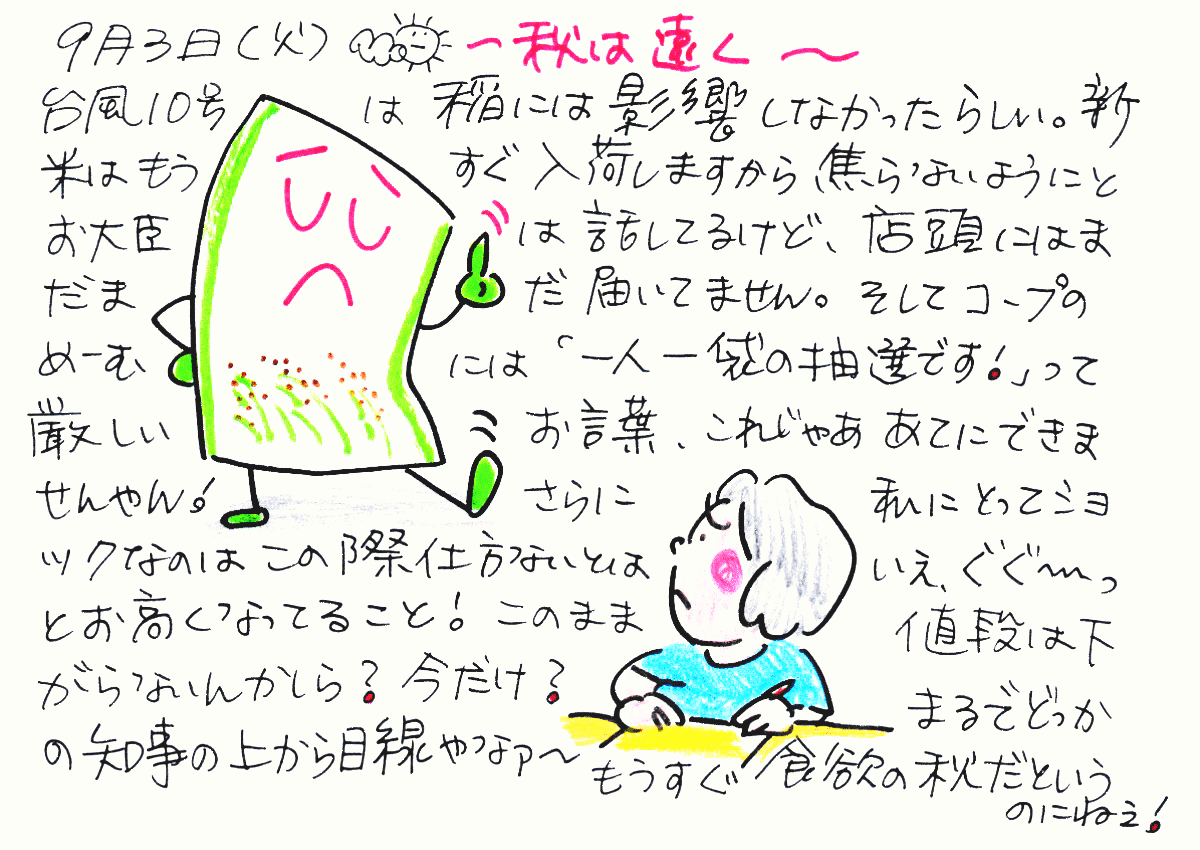 9月3日(火) ～秋は遠く～
台風10号は稲には影響しなかったらしい。新
米はもうすぐ入荷しますから、焦らないようにと
お大臣は話してるけど、店頭にはま
だまだ届いてません。そしてコープの
めーむには「一人一袋の抽選です!」って
厳しいお言葉、これじゃああてにできま
せんやん!さらに私にとってショ
ックなのはこの際仕方ないとはいえ、ぐぐ〜っ
とお高くなってること!このまま値段は下
がらないんかしら?今だけ?まるでどっか
の知事の上から目線やなァ～
もうすぐ食欲の秋だという
のにねェ!